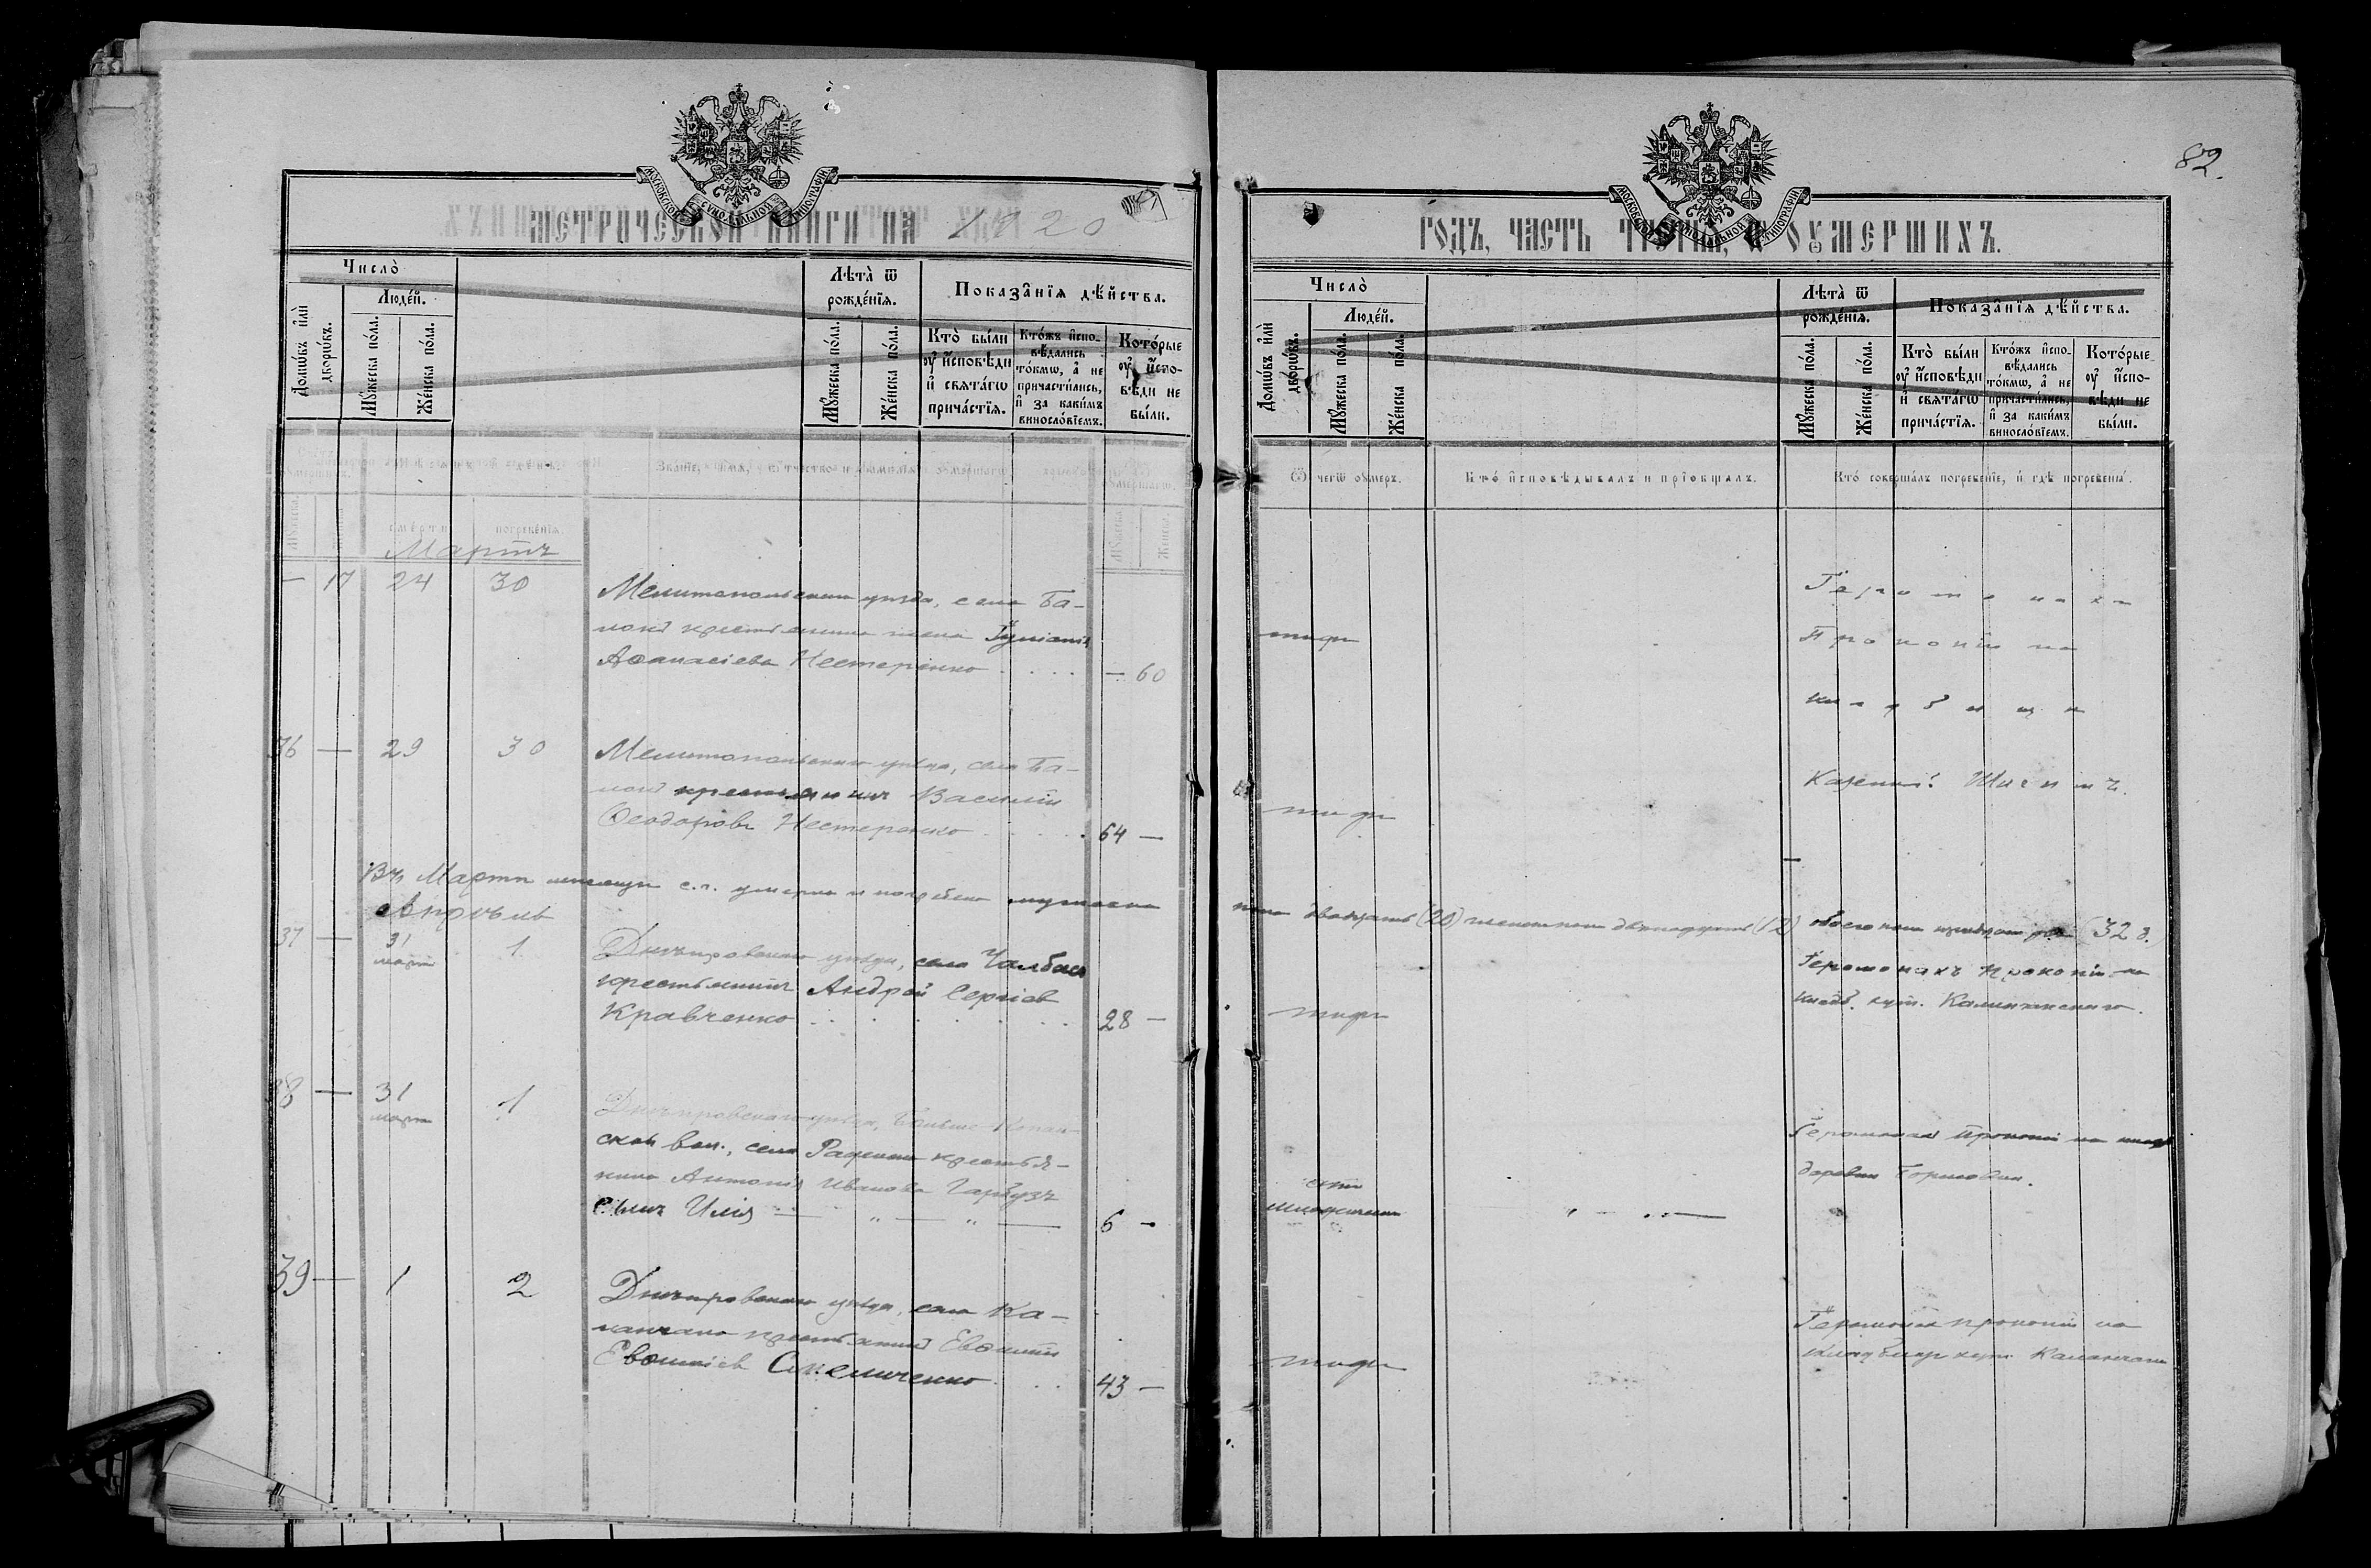 82.
МОСКОВСКОЙ СУНОДАЛЬНОЙ ТИПОГРАФІИ
МЕТРИЧЕСКОЙ КНИГИ НА 1920
Число̀
Домѡвъ и҆лѝ дворѡвъ.
Люде́й.
Мꙋ́жеска по́ла.
Же́нска по́ла.
Лѣта̀ ѿ рожде́нїѧ.
Мꙋ́жеска по́ла.
Же́нска по́ла.
Показа̑нїѧ дѣ́йства.
Кто̀ бы́ли оу҆ и҆сповѣди и҆ свѧта́гѡ прича́стїѧ.
Кто́жъ и҆спо-
вѣдались
то́кмѡ, а҆ не
причасти́лись,
и҆ за каки́мъ
виносло́вїемъ.
Кото́рые
оу҆ и҆спо-
вѣди не
бы́ли.
Званіе, имѧ, отчество и фамилїѧ оумершагѡ
смерти
погребенїѧ
Мартъ
— 17 24 30
Мелитопольскаго уѣзда, села Ба-
локъ крестьянина жена Іуліанія
Аѳанасіева Нестеренко . . . . — 60
36 — 29 30
Мелитопольскаго уѣзда, села Ба-
локъ крестьянинъ Василій
Ѳеодоровъ Нестеренко . . . . 64 —
Въ Мартѣ мѣсяцѣ с.г. умерло и погребено мужеска
Апрѣль
37 — 31 март 1
Днѣпровскаго уѣзда, села Чалбасъ
крестьянинъ Андрей Сергіев
Кравченко . . . . . . 28 —
38 — 31 март 1
Днѣпровскаго уѣзда, Больше-Копан-
ской вол., села Раденска крестья-
нина Антонія Иванова Гарбузъ
сынъ Илія — „ — „ — 6 —
39 — 1 2
Днѣпровскаго уѣзда, села Ка-
ланчака крестьянинъ Евѳимій
Евѳиміев Смеличенко . . . 43 —
МОСКОВСКОЙ СУНОДАЛЬНОЙ ТИПОГРАФІИ
ГОДЪ, ЧАСТЬ ТРЕТІѦ, Ѡ ОУМЕРШИХЪ.
Число̀
Домѡвъ и҆лѝ дворѡвъ.
Люде́й.
Мꙋ́жеска по́ла.
Же́нска по́ла.
Лѣта̀ ѿ рожде́нїѧ.
Мꙋ́жеска по́ла.
Же́нска по́ла.
Показа̑нїѧ дѣ́йства.
Кто̀ бы́ли оу҆ и҆сповѣди и҆ свѧта́гѡ прича́стїѧ.
Кто́жъ и҆спо-
вѣдались
то́кмѡ, а҆ не
причасти́лись,
и҆ за каки́мъ
виносло́вїемъ.
Кото́рые
оу҆ и҆спо-
вѣди не
бы́ли.
Ѿ чегѡ оумеръ.
Кто̀ и҆сповѣдывалъ и прїобщалъ.
Кто̀ совершалъ погребенїе, и҆ гдѣ погребены̀.
тифъ
Іеромонахъ
Прокопій на
кладбищѣ
тифъ
пола двадцать (20) женска пола двѣнадцать (12) обоего пола тридцать два (32 д.)
тифъ
Іеромонахъ Прокопій на
кладб. хут.
отъ
„ — „ —
Іеромонахъ Прокопій на кладб
деревни
тифъ
Іеромонах Прокопій на
кладбищѣ хут. Каланчака